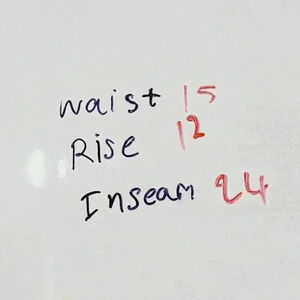 waist 15
Rise 12
Inseam 24